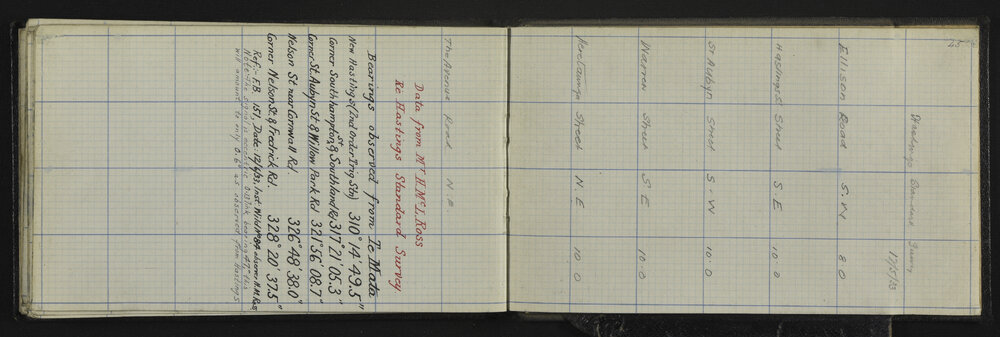 25
Hastings Standard Survey
17/5/33
Ellison Road S.W. 8.0
Hastings St Street S.E 10.0
St Aubyn Street S.W 10.0
Warren Street S E 10.0
Heretaunga Street N.E 10 0
The Avenue Road N.E.
Data from Mr H. McL. Ross
Re Hastings Standard Survey.
Bearings observed from Te Mata
New Hastings (2nd Order Trig Stn) 310° 14' 49.5"
Corner Southampton St & Southland Rd 317° 21' 05.3"
Corner St. Aubyn St. & Willow Park Rd 321° 56' 08.7"
Nelson St near Cornwall Rd 326° 48' 38.0"
Corner Nelson St. & Fredrick Rd. 328° 20' 37.5"
Ref:- F.B. 151, Date: 12/6/33, Inst. Wild No 84 observer H.M. Ross
Note: The signal is eccentric bearing 47° this
will amount to only 0.6" as observed from Hastings